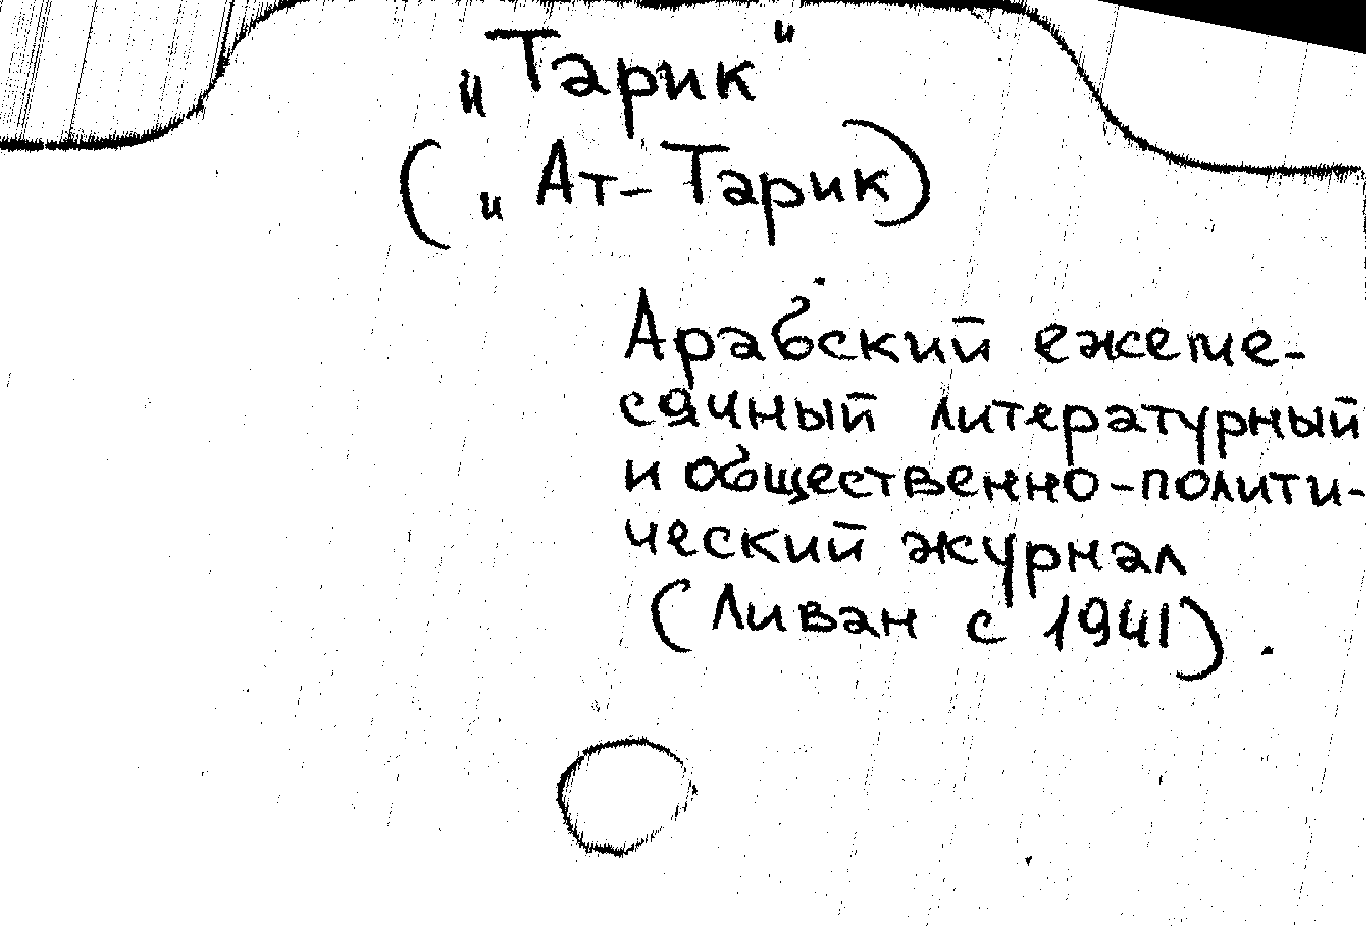 „Тарик"
(„Ат-Тарик)
Арабский ежеме-
сячный литературный
и общественно-полити-
ческий журнал
(Ливан с 1941).